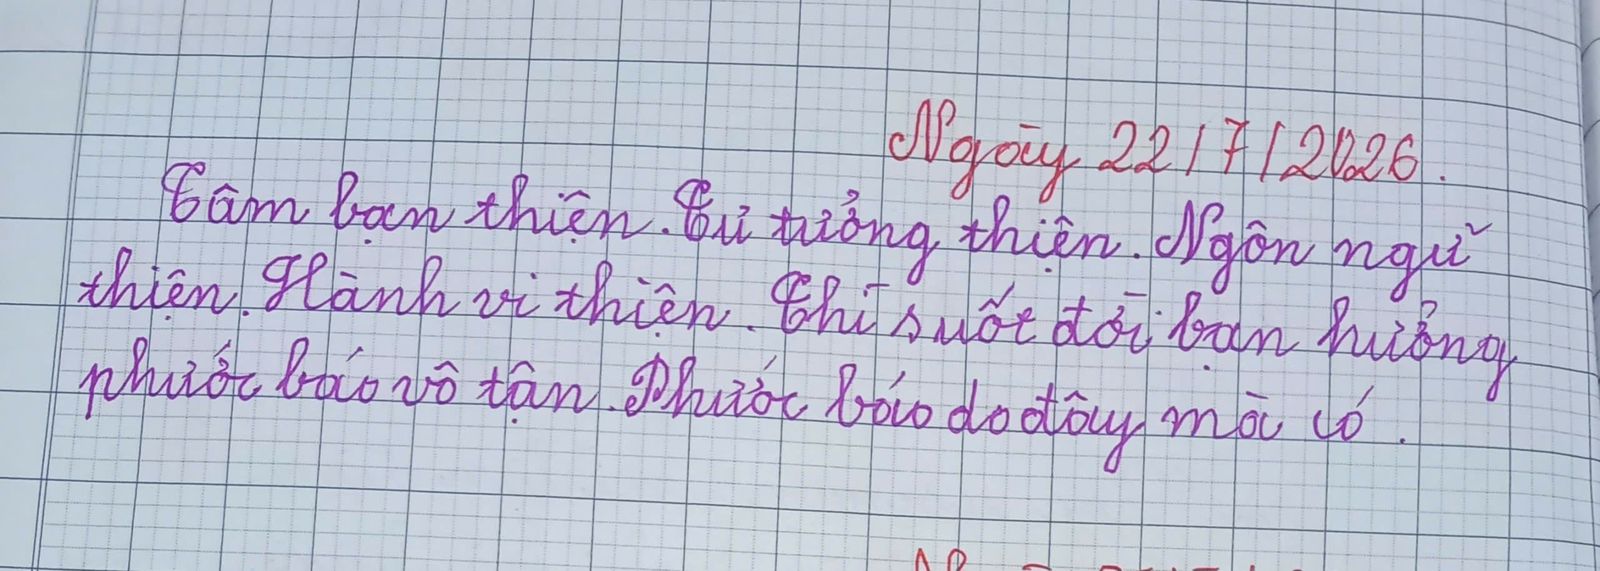 Ngày 22/7/2026.
Tâm bạn thiện. Tư tưởng thiện. Ngôn ngữ
thiện. Hành vi thiện. Thì suốt đời bạn hưởng
phước báo vô tận. Phước báo do đây mà có.